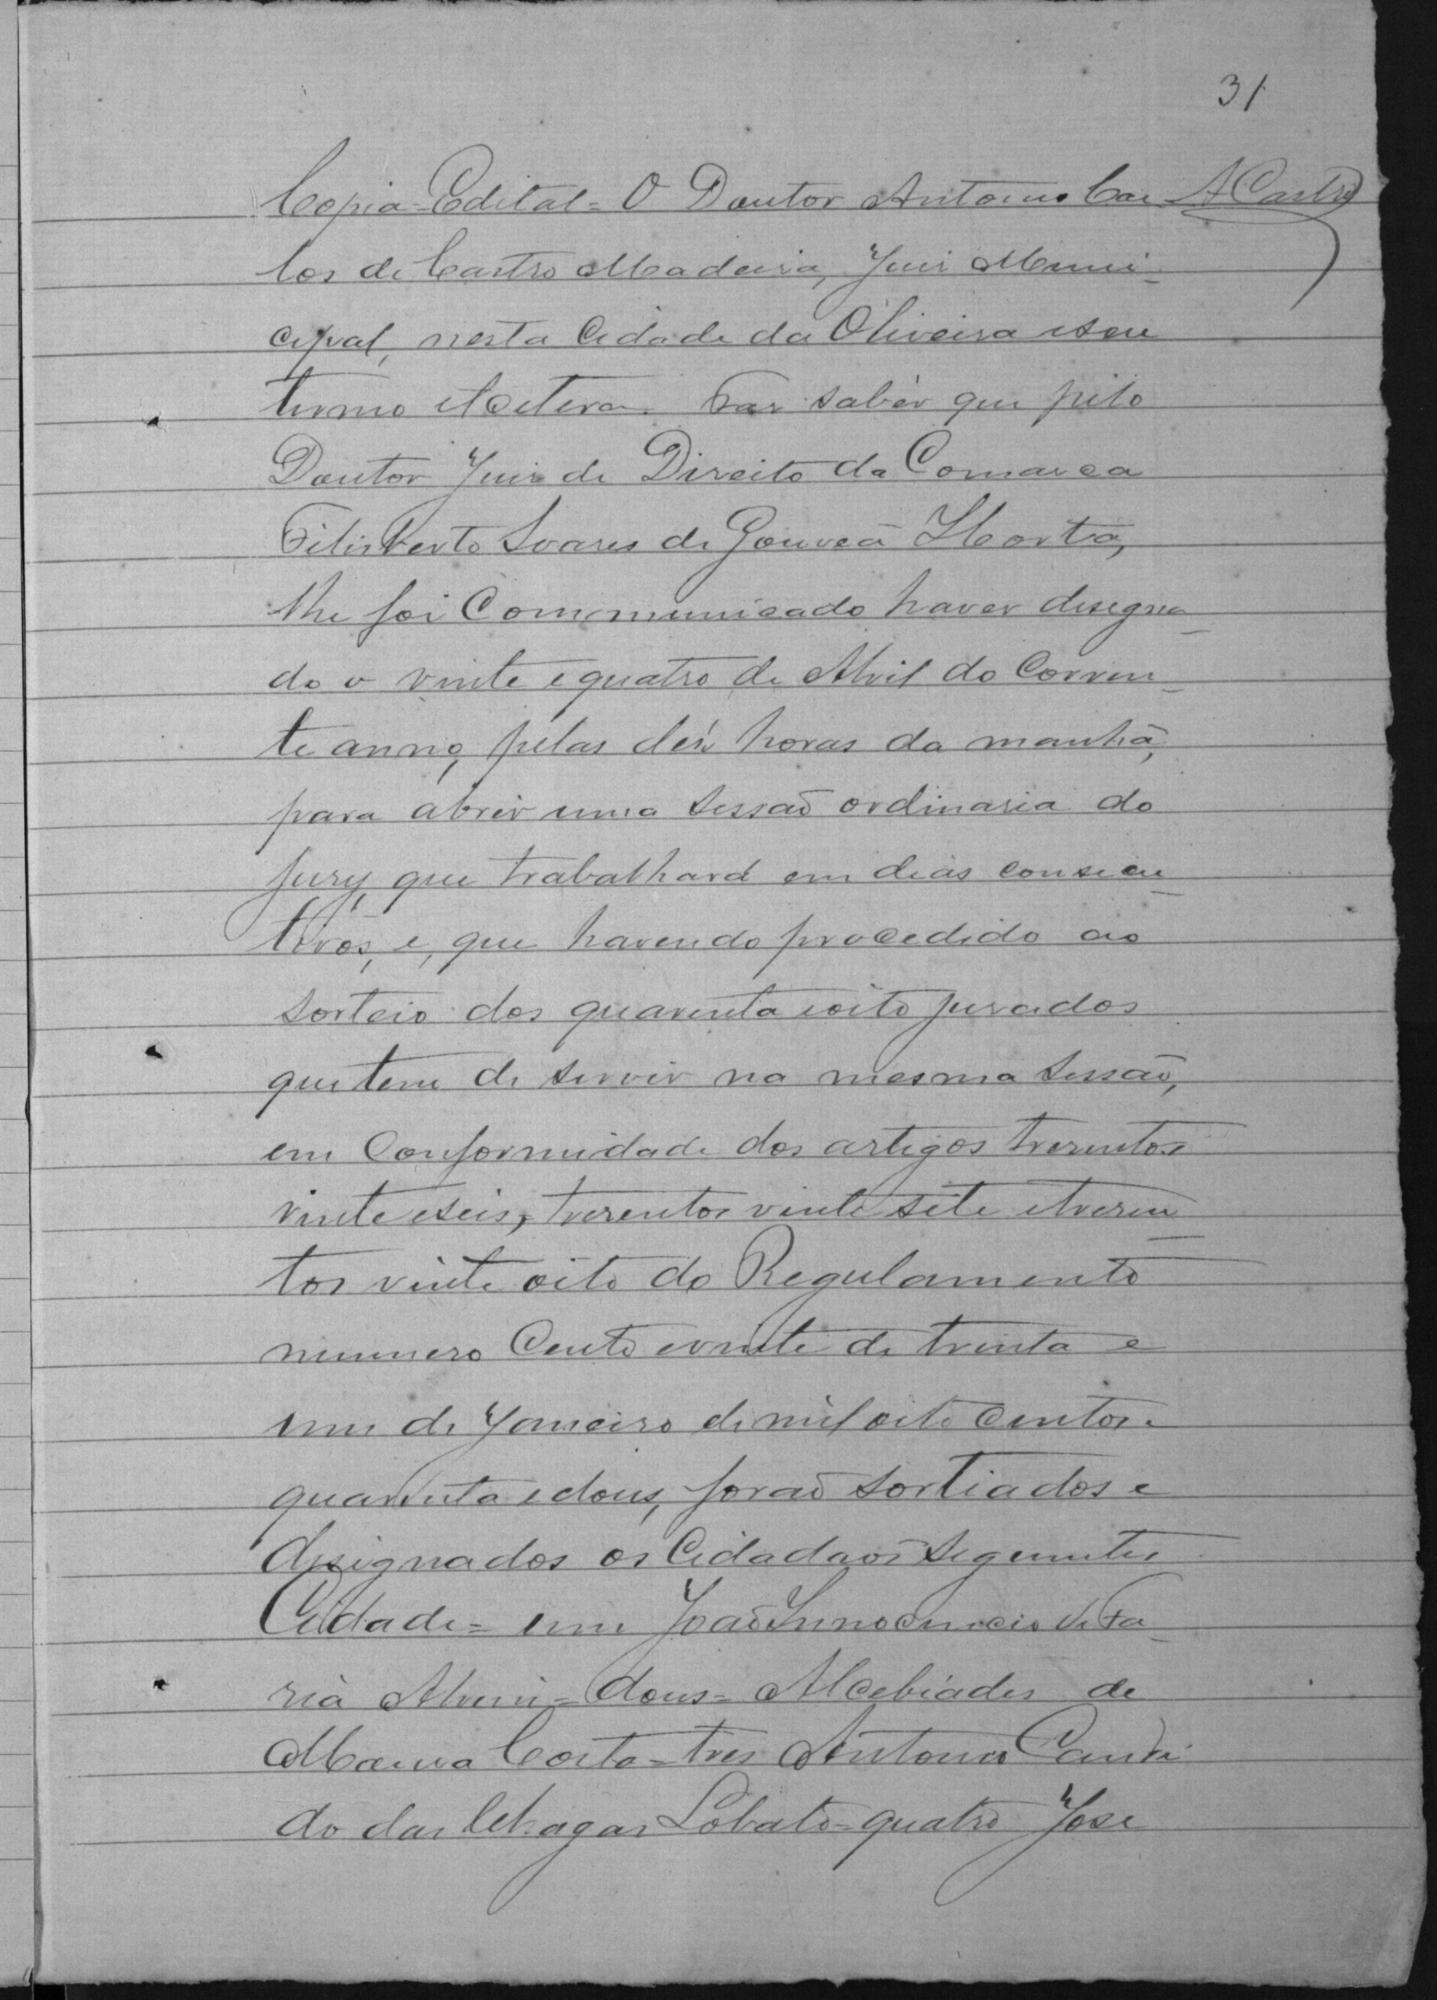 31
Copia = Edital = O Doutor Antonio Car ACastro
los de Castro Madeira, Juis Muni-
cipal, nesta Cidade da Oliveira e seu
termo etcetera. Faz saber que pelo
Doutor Juis de Direito da Comarca
Felisberto Soares de Gouvea Horta,
lhe foi Communicado haver designa-
do o vinte e quatro de Abril do Corren-
te anno, pelas dés horas da manhã,
para abrir uma sessão ordinaria do
jury, que trabalhará em dias consecu-
tivos, e, que havendo procedido ao
sorteio dos quarenta e oito jurados
que tem de servir na mesma sessão,
em Conformidade dos artigos trezentos
vinte e seis, trezentos vinte sete e trezen-
tos vinte oito do Regulamento
numero Cento e vinte de trinta e
um de Janeiro de mil oito Centos e
quarenta e dous, forão sortiados e
designados os Cidadãos seguintes
Cidade = um João Innocencio de Fa-
ria Alvim = dous = Alcebiades de
Costa = tres Antonio Candi
do das Chagas Lobato = quatro José